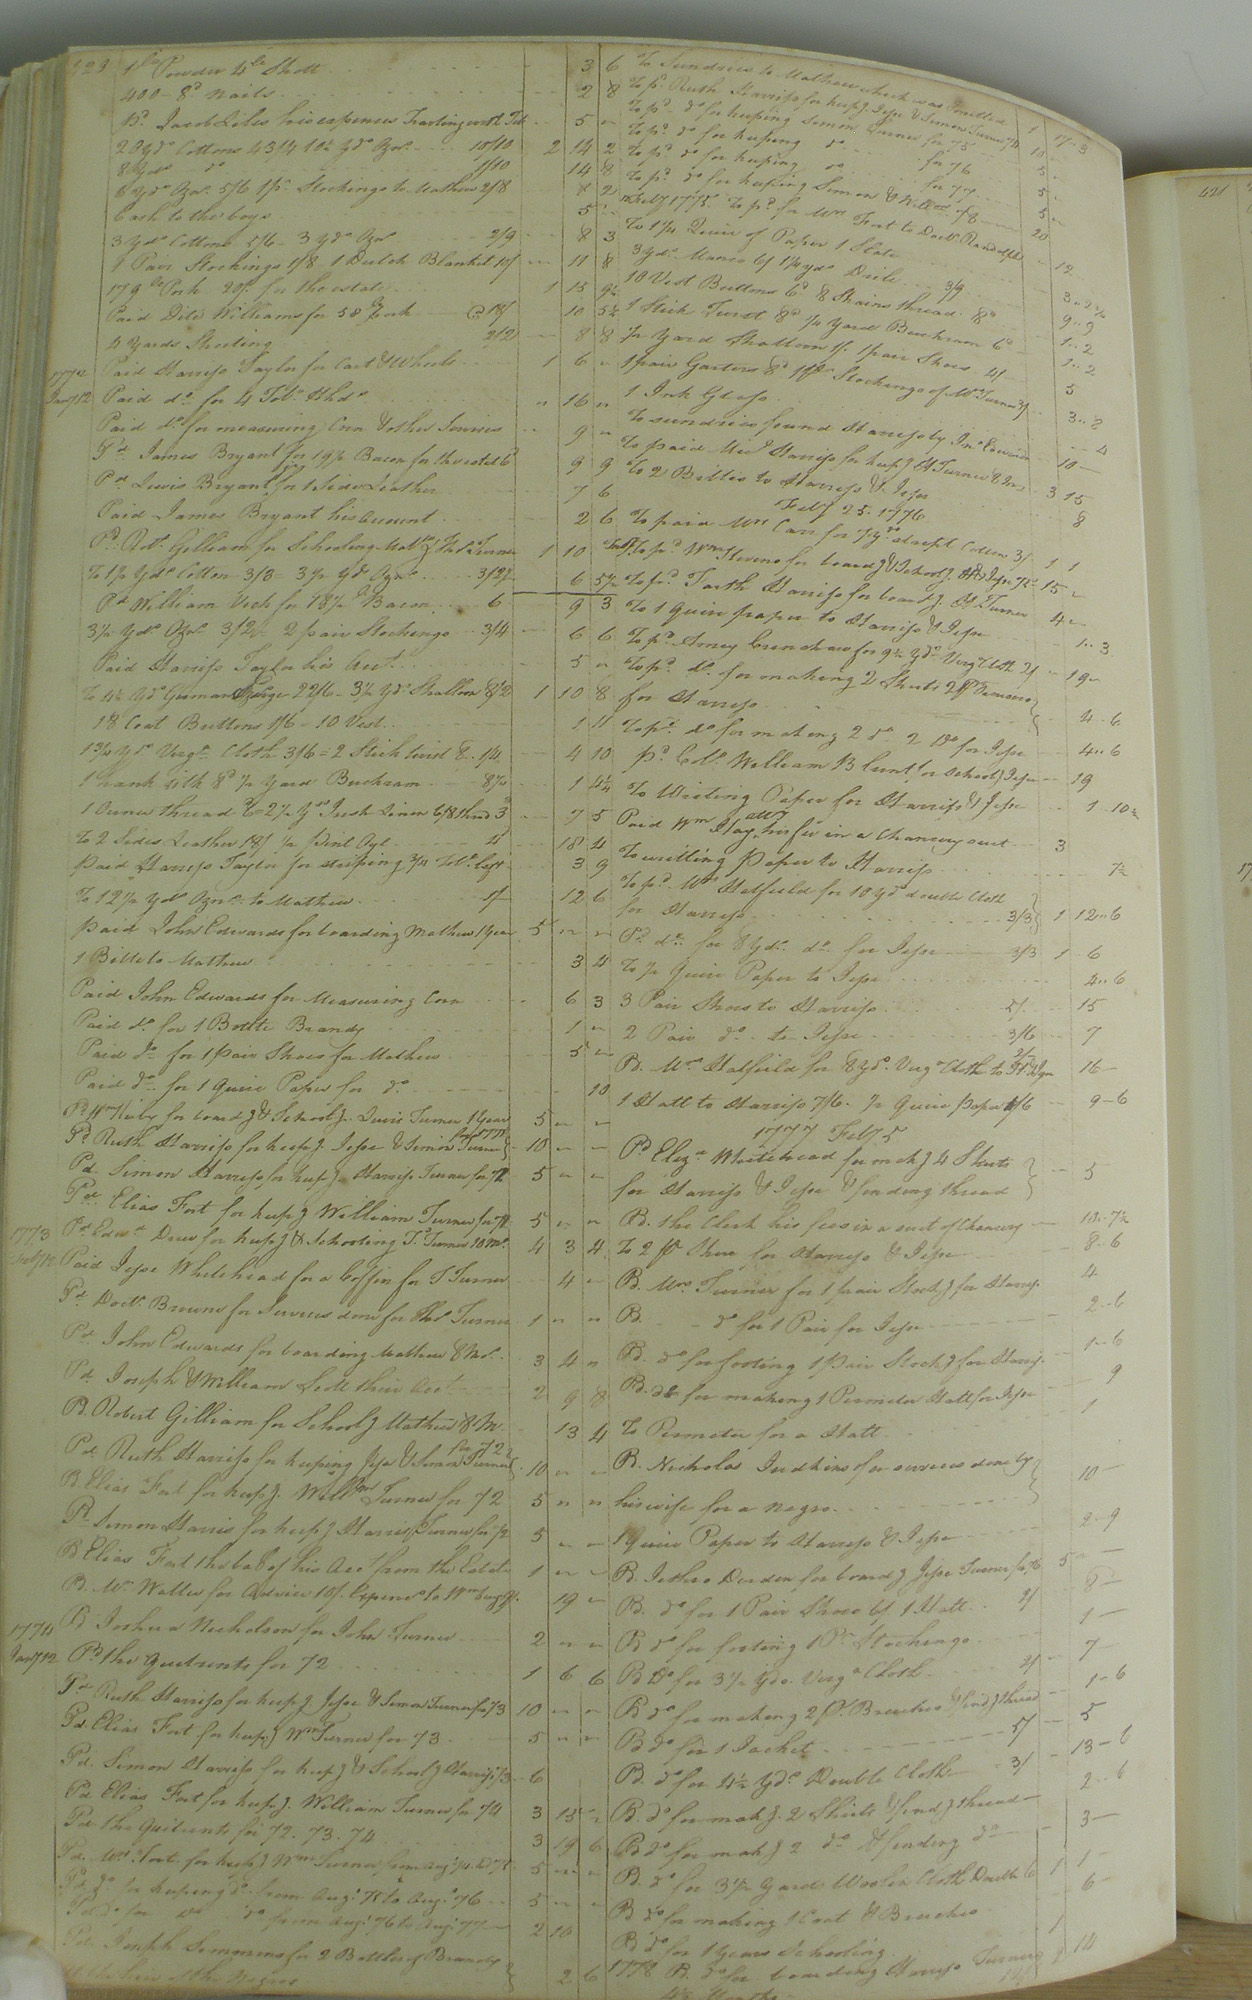 423
1 lb Powder 4 lb Shott 3 6
400 - 8d Nails 2 8
Pd. Jacob Liles his expenses 5 "
29 yds Cottons 10/10 2 14 2
8 yds do 1/10 14 8
6 yds Ozns. 5/6 1 pr. Stockings to Mathew 2/8 8 2
Cash to the boys 5
3 yds Cottons 5/6 - 3 yds Ozns. 2/9 8 3
1 Pair Stockings 1/8 1 Dutch Blanket 10/ 11 8
179 lb Pork for the estate 1 15 9½
Paid Williams for 58 lb Pork @ 18/ 10 5¼
4 Yards Sheeting 2/2 8 8
1772
Jany 12
Paid Harriss Taylor for Cart & Wheels 1 6 "
Paid do. for 4 Tobo. Hhds " 16 "
Paid do. for measuring Corn & other Services 9 "
Pd. James Bryant for 19½ Bacon for the estate 6d 9 9
Pd. Lewis Bryant for 1 Side Leather 7 6
Paid James Bryant his account 2 6
Pd. Robt. Gilliam for Schooling Mathw & Thos Turner 1 10
To 1½ Yds Cotton 3/3 3½ yds Ozns. 3/2½ 6 5½
Pd William Vick for 18½ lb Bacon 6 9 3
3½ Yds Ozns. 3/2½ 2 pair Stockings 3/4 6 6
Paid Harriss Taylor his Act. 5 "
To 4½ Yds German Serge 22/6 - 3½ Yds Shalloon 8/2 1 10 8
18 Coat Buttons 1/6 - 10 Vest 1 11
1¾ Yds Virga. Cloth 3/6 = 2 Stick twist 8. 1/4 4 10
1 hank silk 8d ½ Yard Buckram 8½ 1 4½
1 Ounce thread 6 = 2½ Yds Irish Linen 6/8 thred 3d 7 5
To 2 Sides Leather 18/ ½ Pint Oyl 4 18 4
Paid Harriss Taylor for striping ¾ Tobo. 3 9
To 12½ yds Ozns. to Mathew 1/ 12 6
Paid John Edwards for boarding Mathew 1 Year 5 " "
1 Bible to Mathew 3 4
Paid John Edwards for Measuring Corn 6 3
Paid do. for 1 Bottle Brandy 1 "
Paid do for 1 pair Shoes for Mathew 5 "
Paid do. for 1 Quire Paper for do. 10
Pd Wm Kirby for board g & School g. Lewis Turner 1 Year 5 " "
Pd. Ruth Harriss for keep g. Jesse & Simon Turner 10 " "
Pd. Simon Harriss for keep g. Harriss Turner for 72 5 " "
Pd. Elias Fort for keep g William Turner for 71 5 " "
1773
Pd Edwd Drew for keep g & Schooling T. Turner 10 Mo. 4 3 4
Paid Jesse Whitehead for a Coffin for T Turner 4 "
Pd. Doctr. Browne for Services done for Thos Turner 1 " "
Pd. John Edwards for boarding Mathew 8 Mo. 3 4 "
Pd. Joseph & William Scott their Act 2 9 8
Pd. Robert Gilliam for School g Mathew 8 M. 13 4
Pd. Ruth Harriss for keeping Jesse & Simon Turner for 72 10 " "
Pd Elias Fort for keep g. Willm Turner for 72 5 " "
Pd Simon Harris for keep g Harriss Turner for 72 5 " "
Pd Elias Fort the bal of his Act from the Estate 1 " "
Pd. Mr. Waller for Advice 10/. Expence to Wmsburg 9/. 19 "
1774
Jany 12
Pd Joshua Nicholson for John Turner 2 " "
Pd. the Quitrents for 72 1 6 6
Pd Ruth Harriss for keep g Jesse & Simon Turner for 73 10 " "
Pd. Elias Fort for keep g Wm Turner for 73 5 " "
Pd. Simon Harriss for keep g & School g Harriss 73 6
Pd Elias Fort for keep g. William Turner for 74 3 15 "
Pd the Quitrents for 72. 73. 74 3 19 6
Pd. Mrs Fort for keep g Wm Turner from Augt 74 to Do 75 5 " "
Pd. do for keeping do. from Augt 75 to Augt. 76 5 " "
Pd Do for do do from Augt. 76 to Augt 77 2 10
Pd. Joseph Simmons for 2 Bottles of Brandy
at the hire of the Negros 2 6
To Sundries to Mathew which was Omitted 1 17 3
To pd. Ruth Harriss for keep g Jesse & Simon Turner 74 10
To pd. do for keeping Simon Turner for 75 5
To pd. do for keeping do for 76 5
To pd. do for keeping do for 77 5
To pd. do for keeping Simon & Willm 78 20
Feby 1775 To pd. for Mrs Fort to Doctr. Randolph 12
To 1¼ Quire of Paper 1 Slate 3 2¼
3 yds Manco 6/ 1¼ yds Drile 3/9 9 9
10 Vest Buttons 6d. 8 Skains thread. 8d 1 2
1 Stick Twist 8d ¼ Yard Buckram 6d 1 2
½ Yard Shalloon 1/. 1 pair Shoes 4/ 5
1 pair Garters 8d 1 pr Stockings of Mrs Turner 3/ 3 8
1 Ink Glass 4
To sundries found Harriss by Jno. 10
To paid Harriss for keep g H Turner 3 15
To 2 Bibles to Harriss & Jesse 8
Feby 25. 1776
To paid Mrs Carr for 7 yds stript Cotton 3/ 1 1
To pd. Wm Stevens for board g & School g. H & Jesse 75 15 "
To pd. Faith Harriss for board g. H. Turner 4 "
To 1 Quire paper to Harriss & Jesse 1 3
To pd. Amey Crenshaw for 9½ yds Virga Cloth 2/ 19
To pd. do. for making 2 Shirts 2 pr Trousers
for Harriss 4 6
To pd. do for making 2 do 2 Do for Jesse 4 6
pd. Colo. William Blunt for school g Jesse 19
To Writing Paper for Harriss & Jesse 1 10½
Paid Wm Hay atty his fee in a Chancery suit 3
To writing Paper to Harriss 7½
To pd. Mrs Hatfield for 10 yds double Cloth
for Harriss 3/3 1 12 6
Pd. do. for 8 yds. do. for Jesse 3/3 1 6
To ½ Quire Paper to Jesse 4 6
3 Pair Shoes to Harriss 5/. 15
2 Pair do. to Jesse 3/6 7
Pd. Mrs Hatfield for 8 yds. Virga Cloth to H & Jesse 2/ 16
1 Hatt to Harriss 7/6. ½ Quire Paper 9 6
1777 Feby 5
Pd Eliza. Whitehead for mak g 4 Shirts
for Harriss & Jesse & finding thread 5
Pd. the Clerk his fees in a suit of Chancery 18 7½
To 2 pr Shoes for Harriss & Jesse 8 6
Pd. Mrs Turner for 1 pair Stock g for Harris 4
Pd. do for 1 Pair for Jesse 2 6
Pd. do for footing 1 pair Stock g for Harris 1 6
Pd. do for making 1 Permeta Hatt for Jesse 9
To Permeta for a Hatt 1
Pd. Nicholas Judkins for services done by
his wife for a negro 10
1 Quire Paper to Harriss & Jesse 2 9
Pd. Jethro Durden for board g Jesse Turner for 76 5
Pd. do for 1 Pair Shoes 6/ 1 Hatt 2/ 8
Pd do for footing 1 Pr. Stockings 1
Pd Do for 3½ yds. Virga Cloth 2/ 7
Pd do for making 2 pr. Breeches & find g thread 1 6
Pd do for 1 Jacket 5/ 5
Pd. do for 4½ yds. Double Cloth 3/ 13 6
Pd do for mak g. 2 Shirts & find g thread 2 6
Pd do for mak g 2 do & finding do 3
Pd. do for 3½ Yards Woolen Cloth Double 6 1 1
Pd do for making 1 Coat & Breeches 6
Pd do for 1 Years Schooling 1
1778 Pd. do for boarding Harriss Turner 14
421